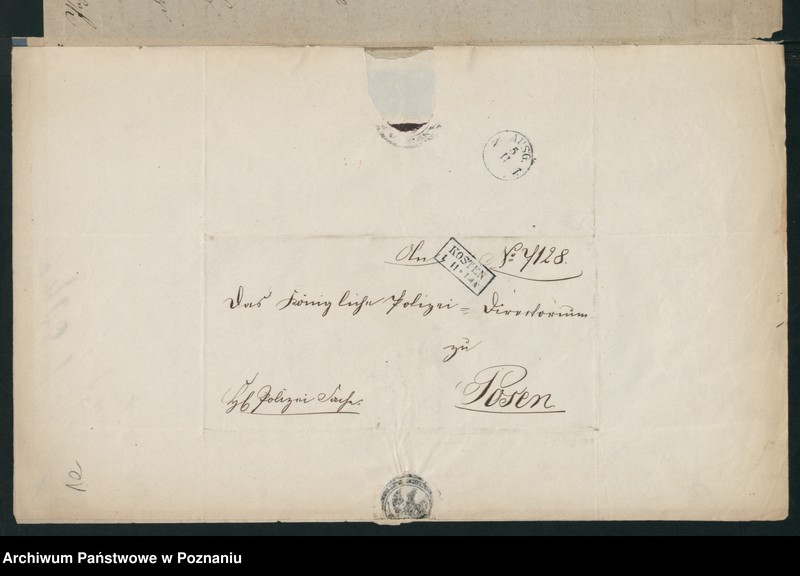 AUSG.
5
11
An
No 7/128.
KOSTEN
Das Königliche Polizei-Directorium
zu
Posen
Polizei Sache.
Archiwum Państwowe w Poznaniu